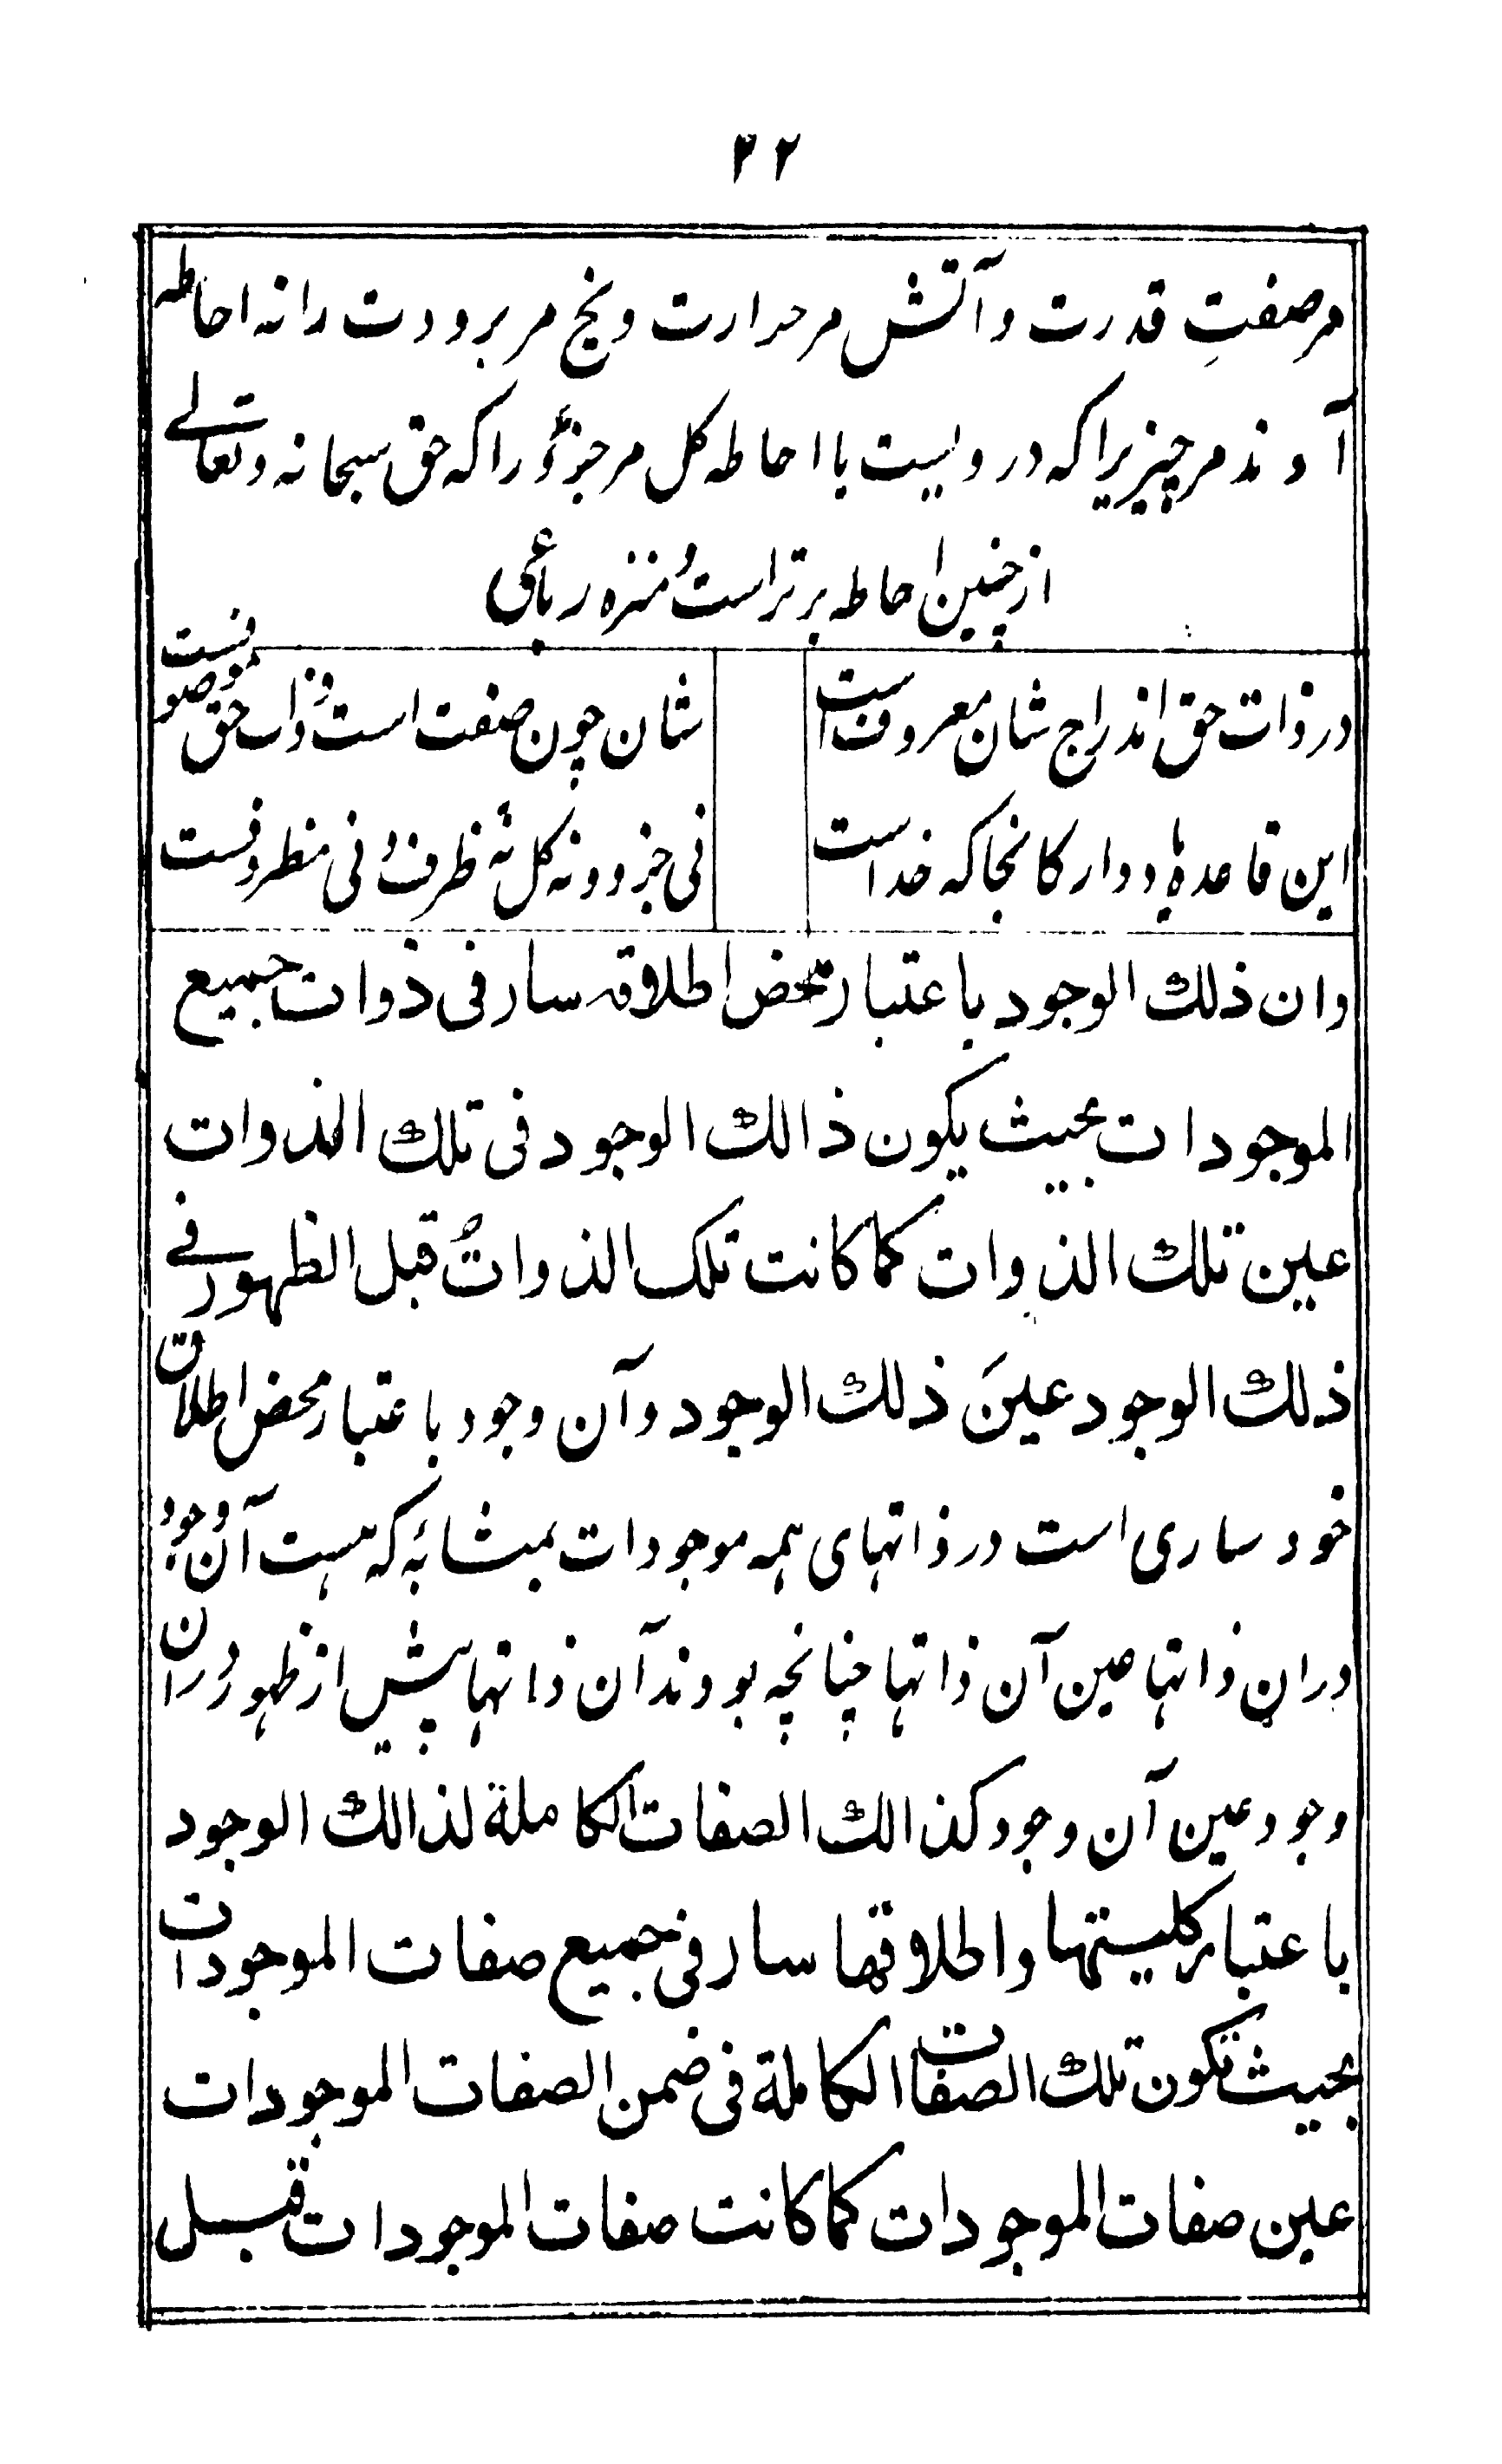 ۳۲
مر صفتِ قدرت و آتش مر حرارت و یخ مر برودت را نه احاطہ
آوند مر چیزیرا که درویست با احاطه کل مر جزؤ را که حق سبحانه و تعالے
از چنین احاطه برتر است و منزه رباعی
در ذات حق اندراج شان معروف است شان چون صفت است و ذات حق موصوفست
این قاعده یاد دار کانجا که خداست نی جزو و نه کل نه ظرف و نی مظروفست
وان ذلك الوجود باعتبار محض اطلاقه سار فی ذوات جمیع
الموجودات بحیث یکون ذالك الوجود فی تلك الذوات
عین تلك الذوات کما کانت تلک الذواتُ قبل الظهور فے
ذلك الوجود عینَ ذلك الوجود و آن وجود باعتبار محض اطلاق
خود ساری است در ذاتهای همه موجودات بمثابۀ که هست آن وجود
دران ذاتها عین آن ذاتها چنانچه بودند آن ذاتها پیش از ظهور دران
وجود عین آن وجود کذالك الصفات الکاملة لذالك الوجود
باعتبار کلیتها و اطلاقها سار فی جمیع صفات الموجودات
بحیث تکون تلك الصفات الکاملة فی ضمن الصفات الموجودات
عین صفات الموجودات کما کانت صفات الموجودات قبل